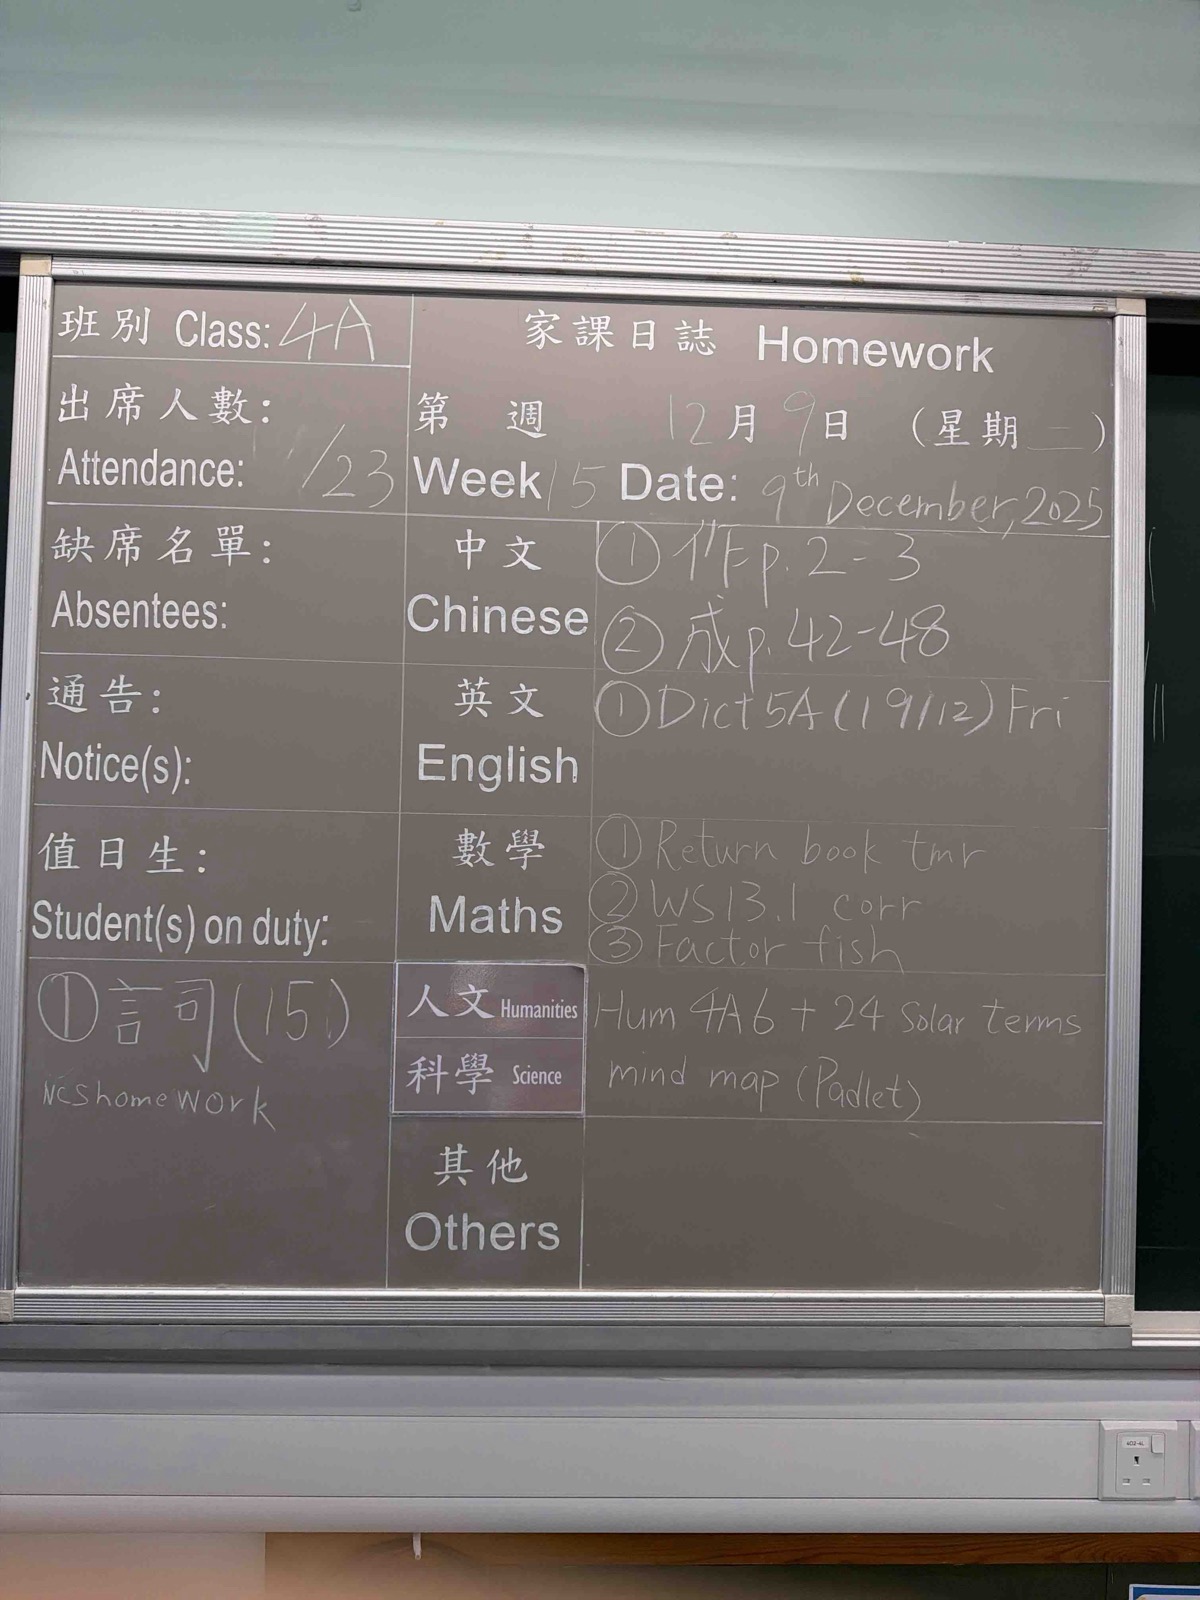 班別 Class: 4A
家課日誌 Homework
出席人數:
Attendance: /23
第 週 12月9日 (星期二)
Week 15 Date: 9th December, 2025
缺席名單:
Absentees:
中文
Chinese
① 作 p. 2-3
② 成 p. 42-48
通告:
Notice(s):
英文
English
① Dict 5A (19/12) Fri
值日生:
Student(s) on duty:
數學
Maths
① Return book tmr
② WS 13.1 corr
③ Factor fish
① 詞 (15)
NCS homework
人文 Humanities
科學 Science
Hum 4A6 + 24 Solar terms
mind map (Padlet)
其他
Others